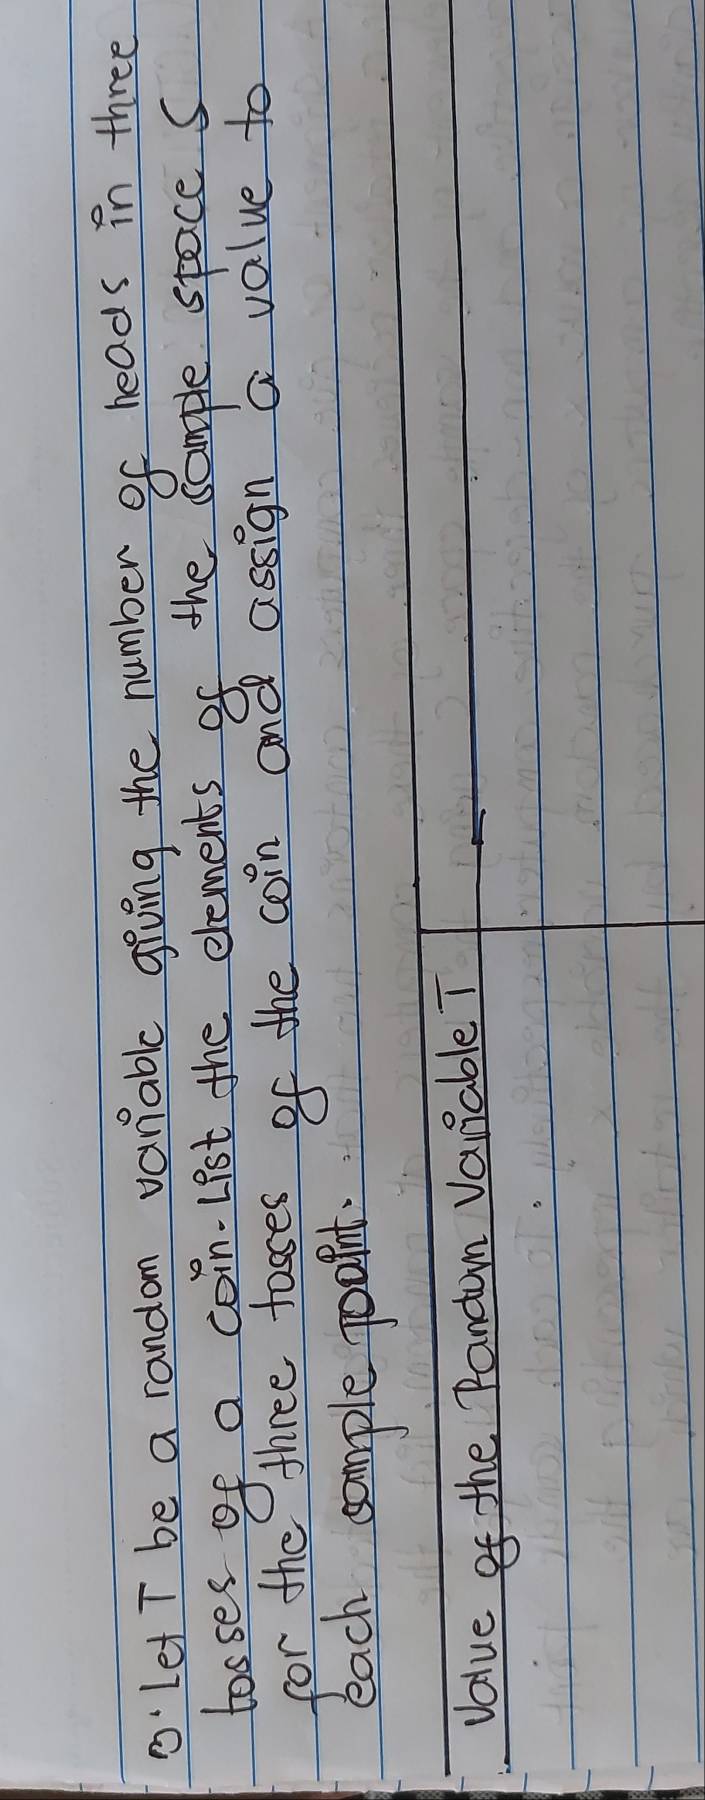 3. Let T be a random variable giving the number of heads in three
tosses of a coin. List the elements of the sample space S
for the three tosses of the coin and assign a value to
each sample point.
Value of the Random Variable T